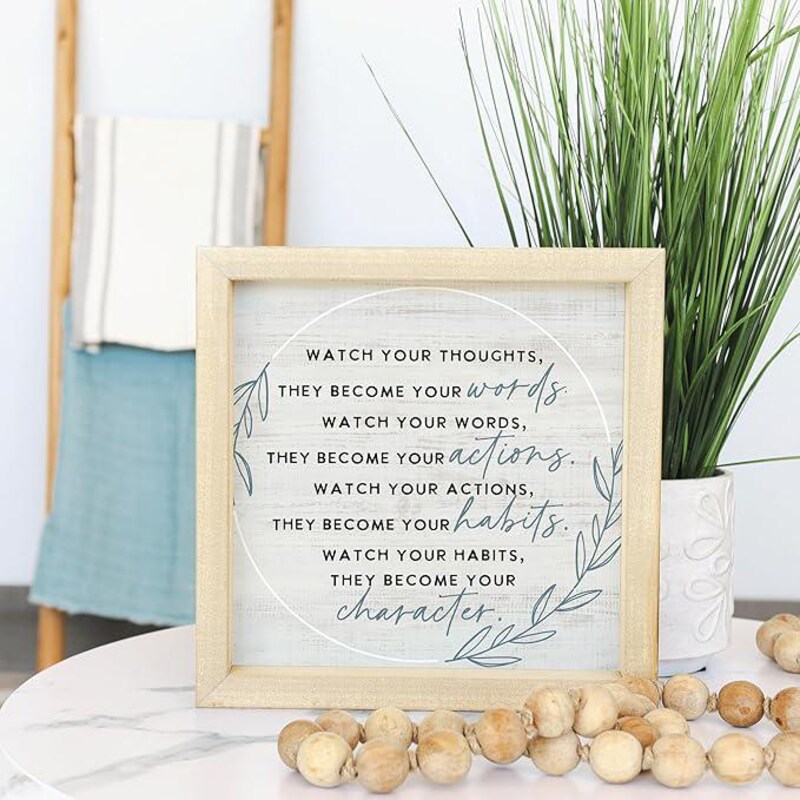 WATCH YOUR THOUGHTS,
THEY BECOME YOUR words.
WATCH YOUR WORDS,
THEY BECOME YOUR actions.
WATCH YOUR ACTIONS,
THEY BECOME YOUR habits.
WATCH YOUR HABITS,
THEY BECOME YOUR
character.